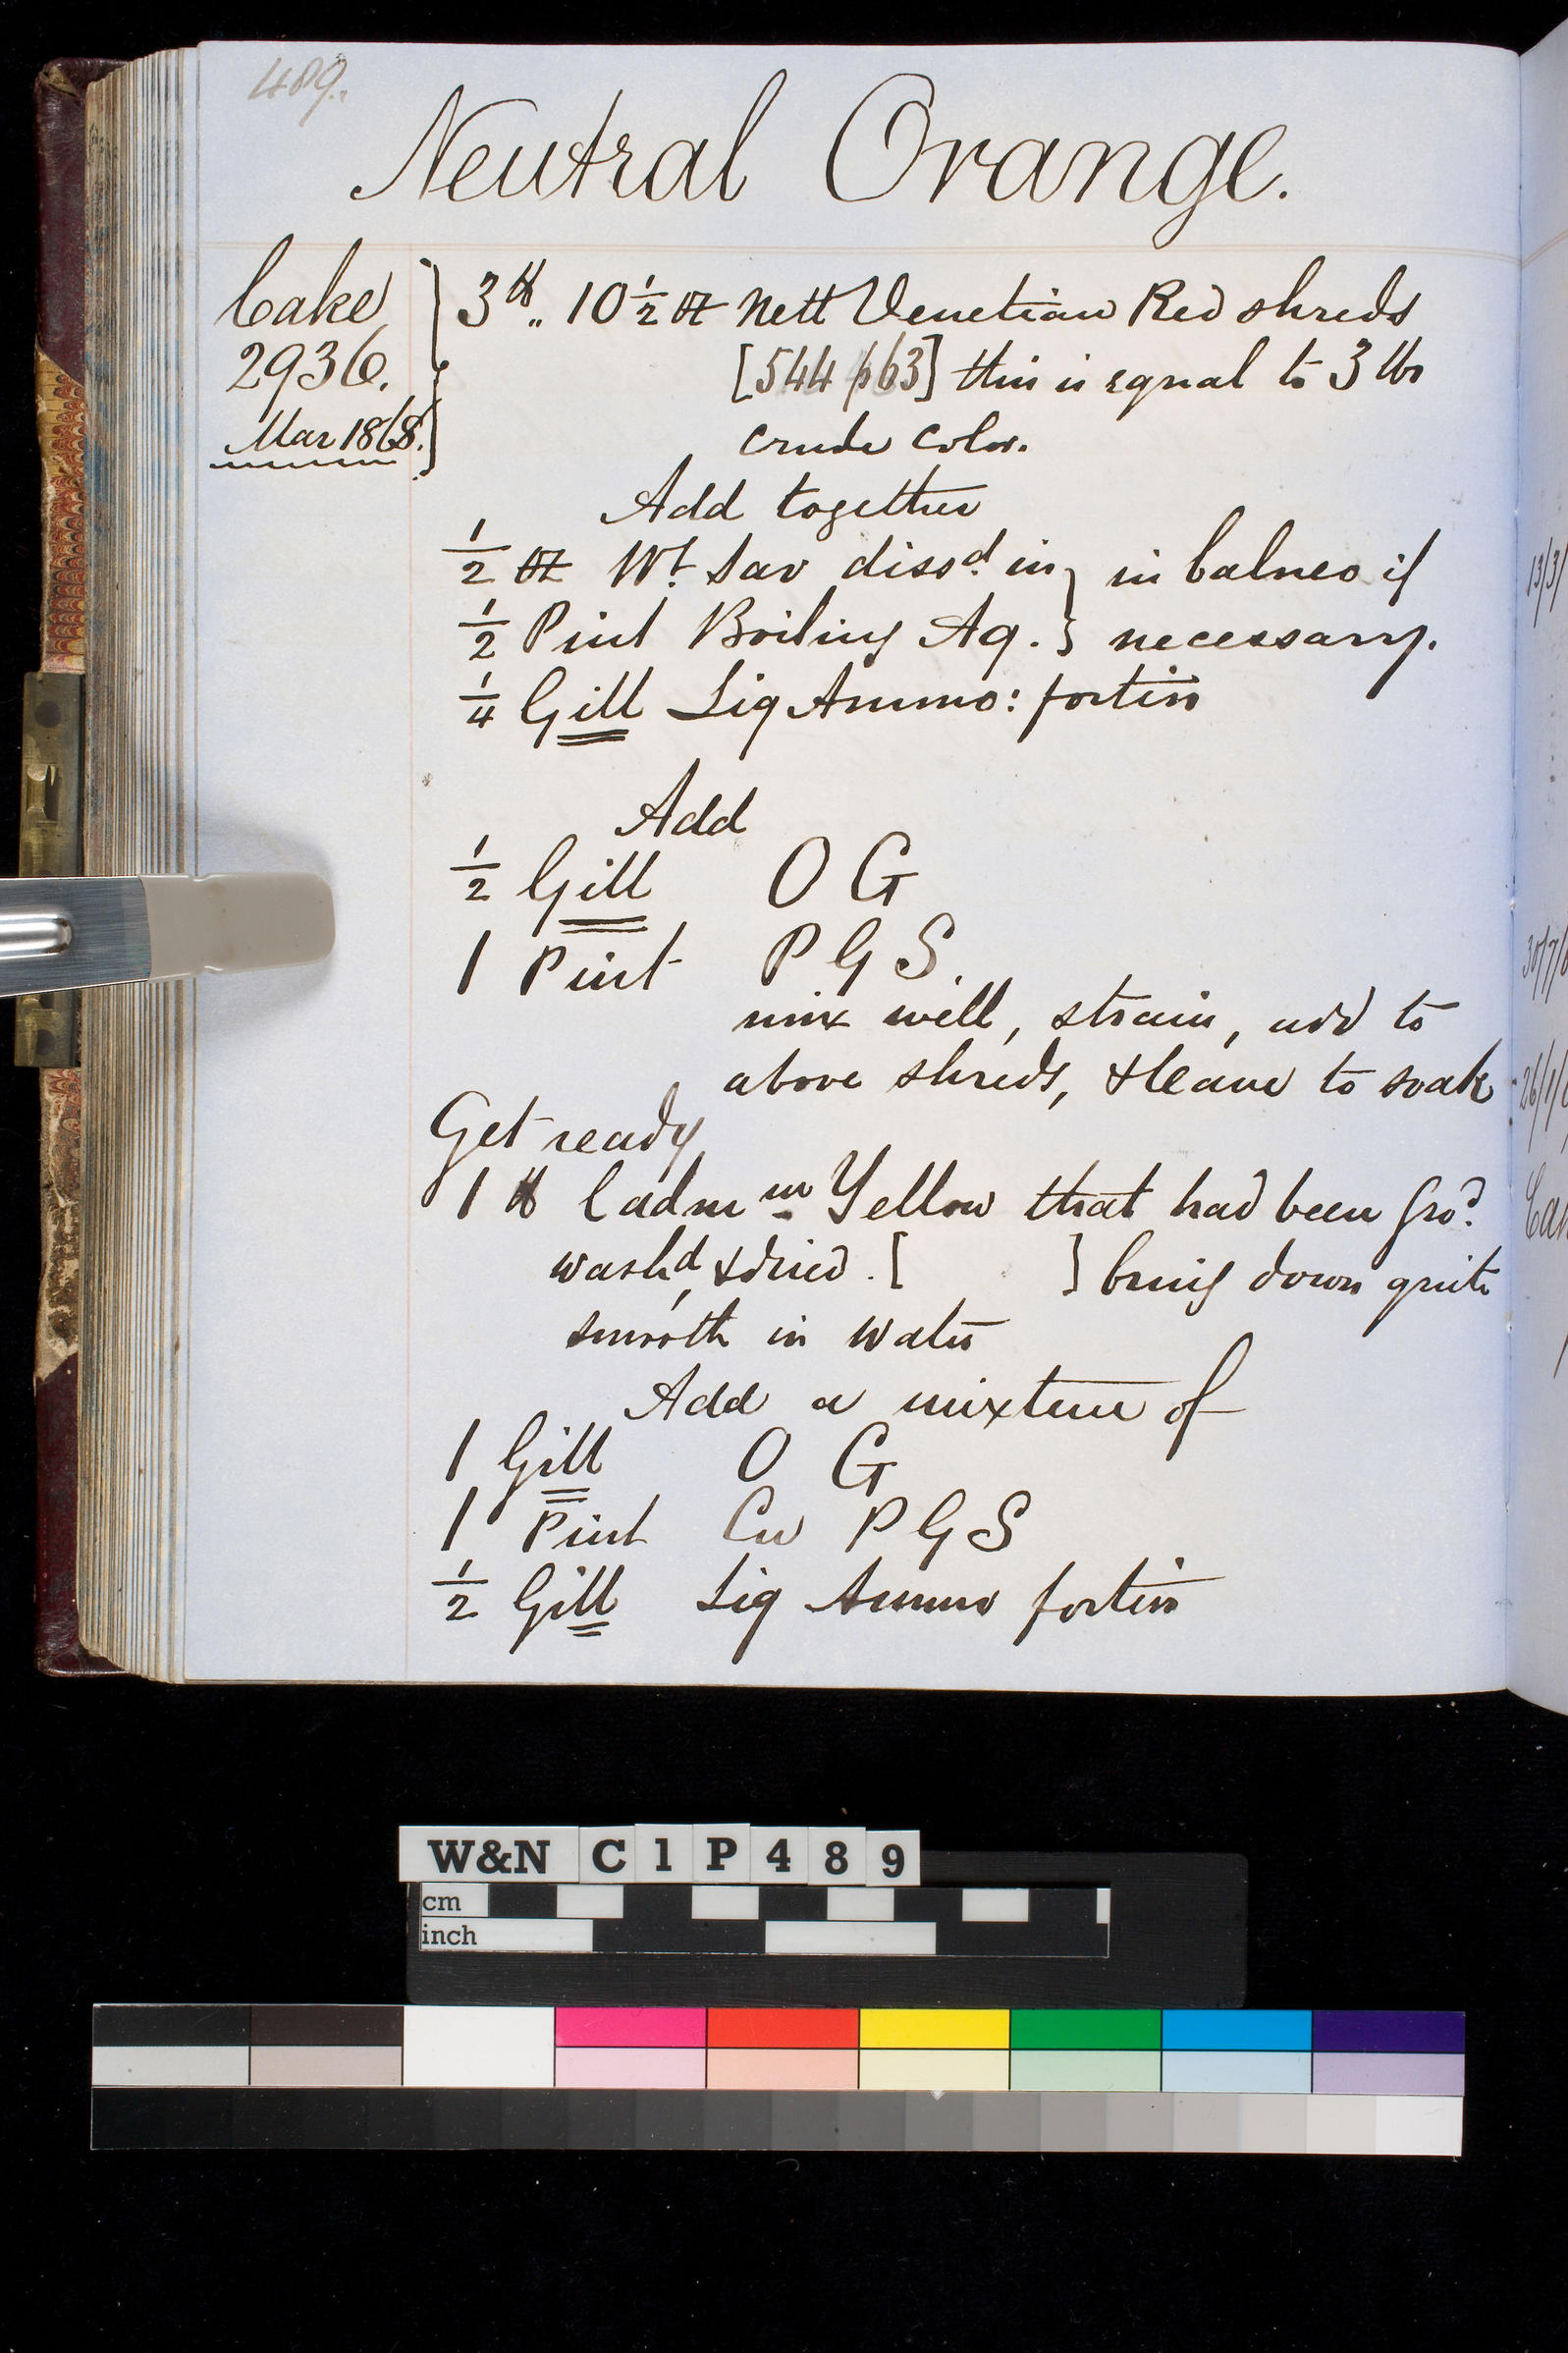 489.
Neutral Orange.
Cake
2936.
Mar 1868.
3 lb„ 10 1/2 oz Nett Venetian Red shreds
[544 p63] this is equal to 3 lbs
crude color.
Add together
1/2 oz Wt. Sav dissd. in } in balneo if
1/2 Pint Boiling Aq. } necessary.
1/4 Gill Liq Ammo: fortiss
Add
1/2 Gill O G
1 Pint P G S.
mix well, strain, add to
above shreds, & leave to soak
Get ready
1 lb Cadmm Yellow that had been Grd.
washd, & dried. [ ] bring down quite
smooth in water
Add a mixture of
1 Gill O G
1 Pint Cu P G S
1/2 Gill Liq Ammo fortiss
13/3/
30/7/
26/1/
W&N C1P489
cm
inch